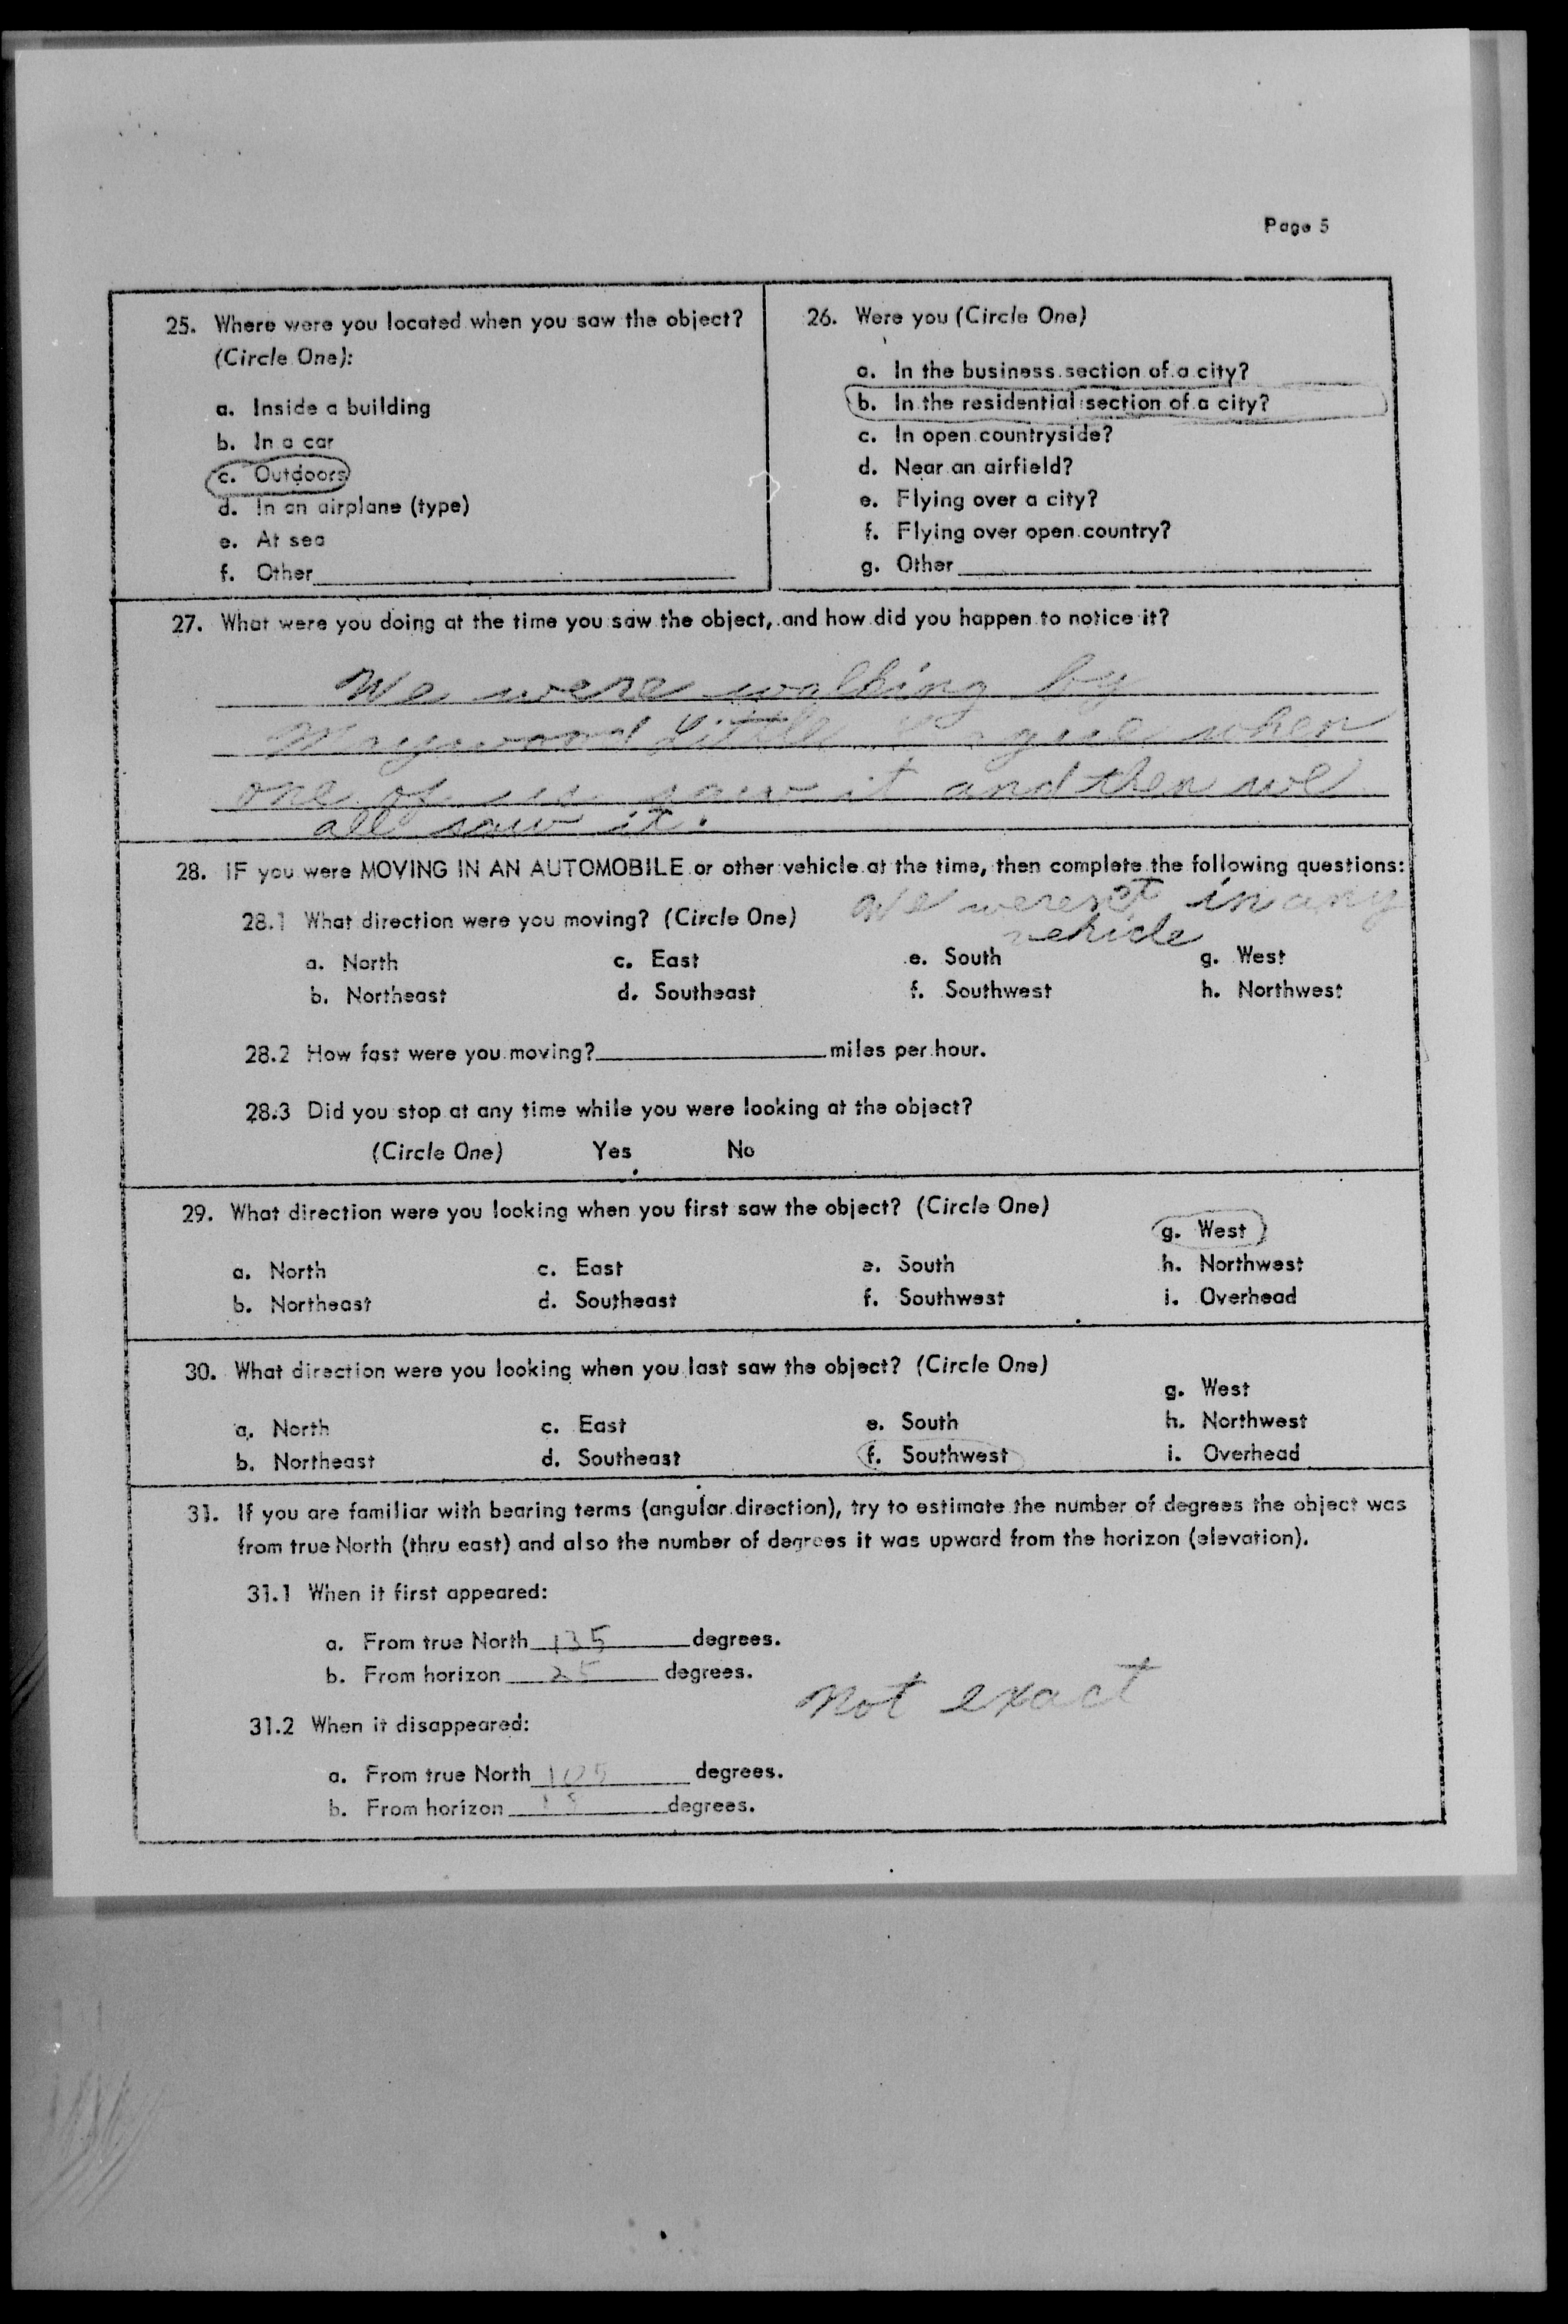 Page 5
25. Where were you located when you saw the object?
(Circle One):
a. Inside a building
b. In a car
c. Outdoors
d. In an airplane (type)
e. At sea
f. Other
26. Were you (Circle One)
a. In the business section of a city?
b. In the residential section of a city?
c. In open countryside?
d. Near an airfield?
e. Flying over a city?
f. Flying over open country?
g. Other
27. What were you doing at the time you saw the object, and how did you happen to notice it?
We were walking by
Maywood Little League when
one of us saw it and then we
all saw it.
28. IF you were MOVING IN AN AUTOMOBILE or other vehicle at the time, then complete the following questions:
We weren't in any
vehicle
28.1 What direction were you moving? (Circle One)
a. North c. East e. South g. West
b. Northeast d. Southeast f. Southwest h. Northwest
28.2 How fast were you moving? miles per hour.
28.3 Did you stop at any time while you were looking at the object?
(Circle One) Yes No
29. What direction were you looking when you first saw the object? (Circle One)
g. West
a. North c. East e. South h. Northwest
b. Northeast d. Southeast f. Southwest i. Overhead
30. What direction were you looking when you last saw the object? (Circle One)
g. West
a. North c. East e. South h. Northwest
b. Northeast d. Southeast f. Southwest i. Overhead
31. If you are familiar with bearing terms (angular direction), try to estimate the number of degrees the object was
from true North (thru east) and also the number of degrees it was upward from the horizon (elevation).
31.1 When it first appeared:
a. From true North 135 degrees.
b. From horizon 25 degrees.
not exact
31.2 When it disappeared:
a. From true North 105 degrees.
b. From horizon degrees.